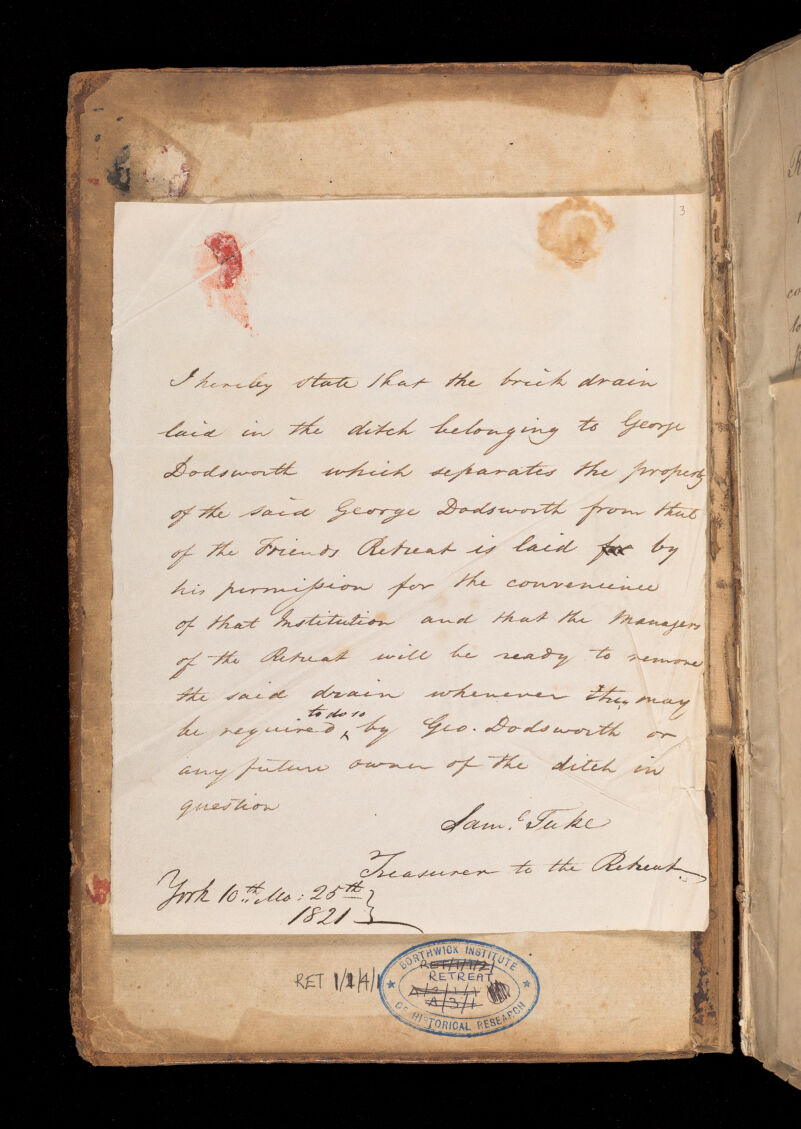 3
I hereby state that the brick drain
laid in the ditch belonging to George
Dodsworth which separates the property
of the said George Dodsworth from that
of the Friends Retreat is laid for by
his permission for the convenience
of that Institution and that the Managers
of the Retreat will be ready to remove
the said drain whenever they may
to do so
be required ‸ by Geo. Dodsworth or
any future owner of the ditch in
question
Saml. Tuke
Treasurer to the Retreat
York 10th Mo: 25th
1821
BORTHWICK INSTITUTE
RET/1/1/2/
RETREAT
A/3/1
OF HISTORICAL RESEARCH
RET 1/1/4/1